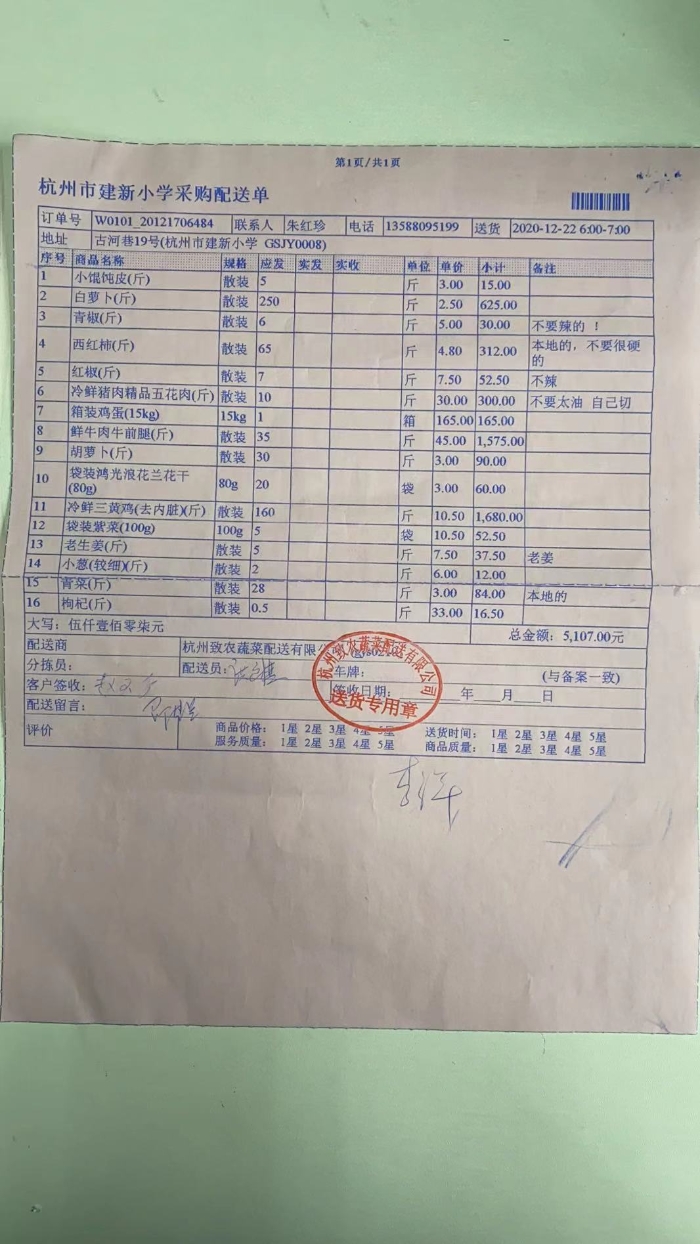 第1页/共1页
杭州市建新小学采购配送单
订单号 W0101_20121706484 联系人 朱红珍 电话 13588095199 送货 2020-12-22 6:00-7:00
地址 古河巷19号(杭州市建新小学 GSJY0008)
序号 商品名称 规格 应发 实发 实收 单位 单价 小计 备注
1 小馄饨皮(斤) 散装 5 斤 3.00 15.00
2 白萝卜(斤) 散装 250 斤 2.50 625.00
3 青椒(斤) 散装 6 斤 5.00 30.00 不要辣的 ！
4 西红柿(斤) 散装 65 斤 4.80 312.00 本地的，不要很硬
的
5 红椒(斤) 散装 7 斤 7.50 52.50 不辣
6 冷鲜猪肉精品五花肉(斤) 散装 10 斤 30.00 300.00 不要太油 自己切
7 箱装鸡蛋(15kg) 15kg 1 箱 165.00 165.00
8 鲜牛肉牛前腿(斤) 散装 35 斤 45.00 1,575.00
9 胡萝卜(斤) 散装 30 斤 3.00 90.00
10 袋装鸿光浪花兰花干
(80g) 80g 20 袋 3.00 60.00
11 冷鲜三黄鸡(去内脏)(斤) 散装 160 斤 10.50 1,680.00
12 袋装紫菜(100g) 100g 5 袋 10.50 52.50
13 老生姜(斤) 散装 5 斤 7.50 37.50 老姜
14 小葱(较细)(斤) 散装 2 斤 6.00 12.00
15 青菜(斤) 散装 28 斤 3.00 84.00 本地的
16 枸杞(斤) 散装 0.5 斤 33.00 16.50
大写：伍仟壹佰零柒元 总金额：5,107.00元
配送商 杭州致农蔬菜配送有限公
分拣员： 配送员： 车牌： (与备案一致)
客户签收： 签收日期： 年 月 日
配送留言：
评价 商品价格： 1星 2星 3星 4星 5星 送货时间： 1星 2星 3星 4星 5星
服务质量： 1星 2星 3星 4星 5星 商品质量： 1星 2星 3星 4星 5星
杭州致农蔬菜配送有限公司
送货专用章